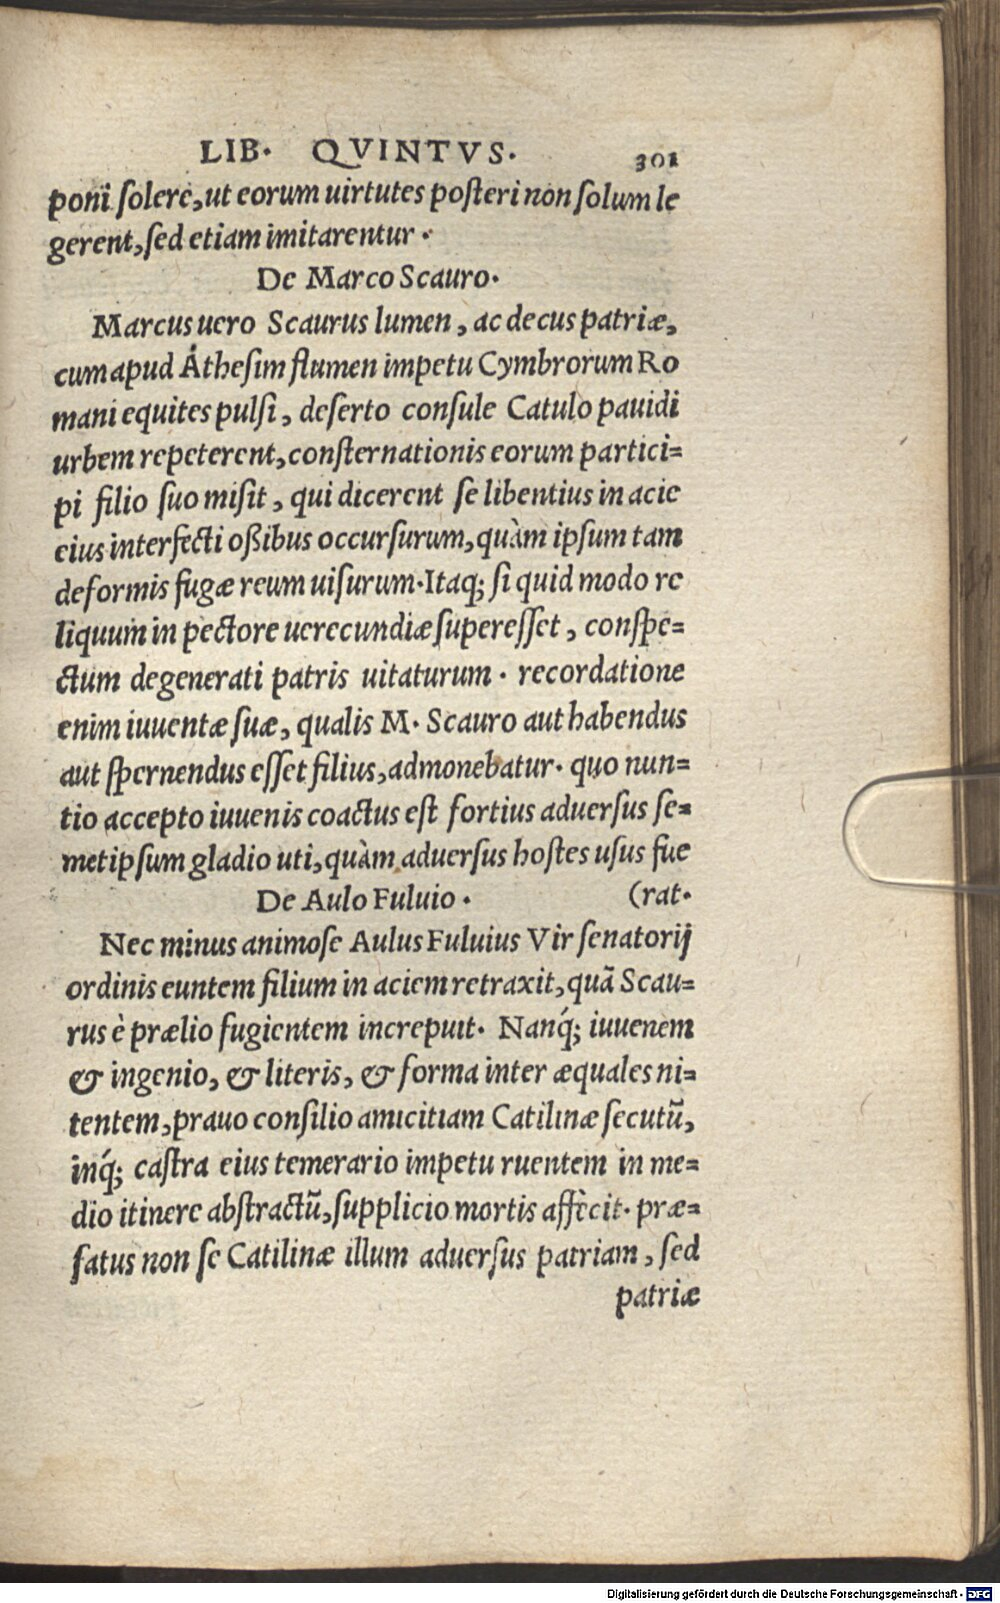 LIB. QVINTVS. 301
poni solere, ut eorum uirtutes posteri non solum le
gerent, sed etiam imitarentur.
De Marco Scauro.
Marcus uero Scaurus lumen, ac decus patriæ,
cum apud Athesim flumen impetu Cymbrorum Ro
mani equites pulsi, deserto consule Catulo pauidi
urbem repeterent, consternationis eorum partici=
pi filio suo misit, qui dicerent se libentius in acie
eius interfecti oßibus occursurum, quàm ipsum tam
deformis fugæ reum uisurum. Itaq; si quid modo re
liquum in pectore uerecundiæ superesset, conspe=
ctum degenerati patris uitaturum. recordatione
enim iuuentæ suæ, qualis M. Scauro aut habendus
aut spernendus esset filius, admonebatur. quo nun=
tio accepto iuuenis coactus est fortius aduersus se=
metipsum gladio uti, quàm aduersus hostes usus fue
De Aulo Fuluio. (rat.
Nec minus animose Aulus Fuluius Vir senatorij
ordinis euntem filium in aciem retraxit, quã Scau=
rus è prælio fugientem increpuit. Nanq́; iuuenem
& ingenio, & literis, & forma inter æquales ni=
tentem, prauo consilio amicitiam Catilinæ secutũ,
inq́; castra eius temerario impetu ruentem in me=
dio itinere abstractũ, supplicio mortis affècit. præ=
fatus non se Catilinæ illum aduersus patriam, sed
patriæ
Digitalisierung gefördert durch die Deutsche Forschungsgemeinschaft - DFG